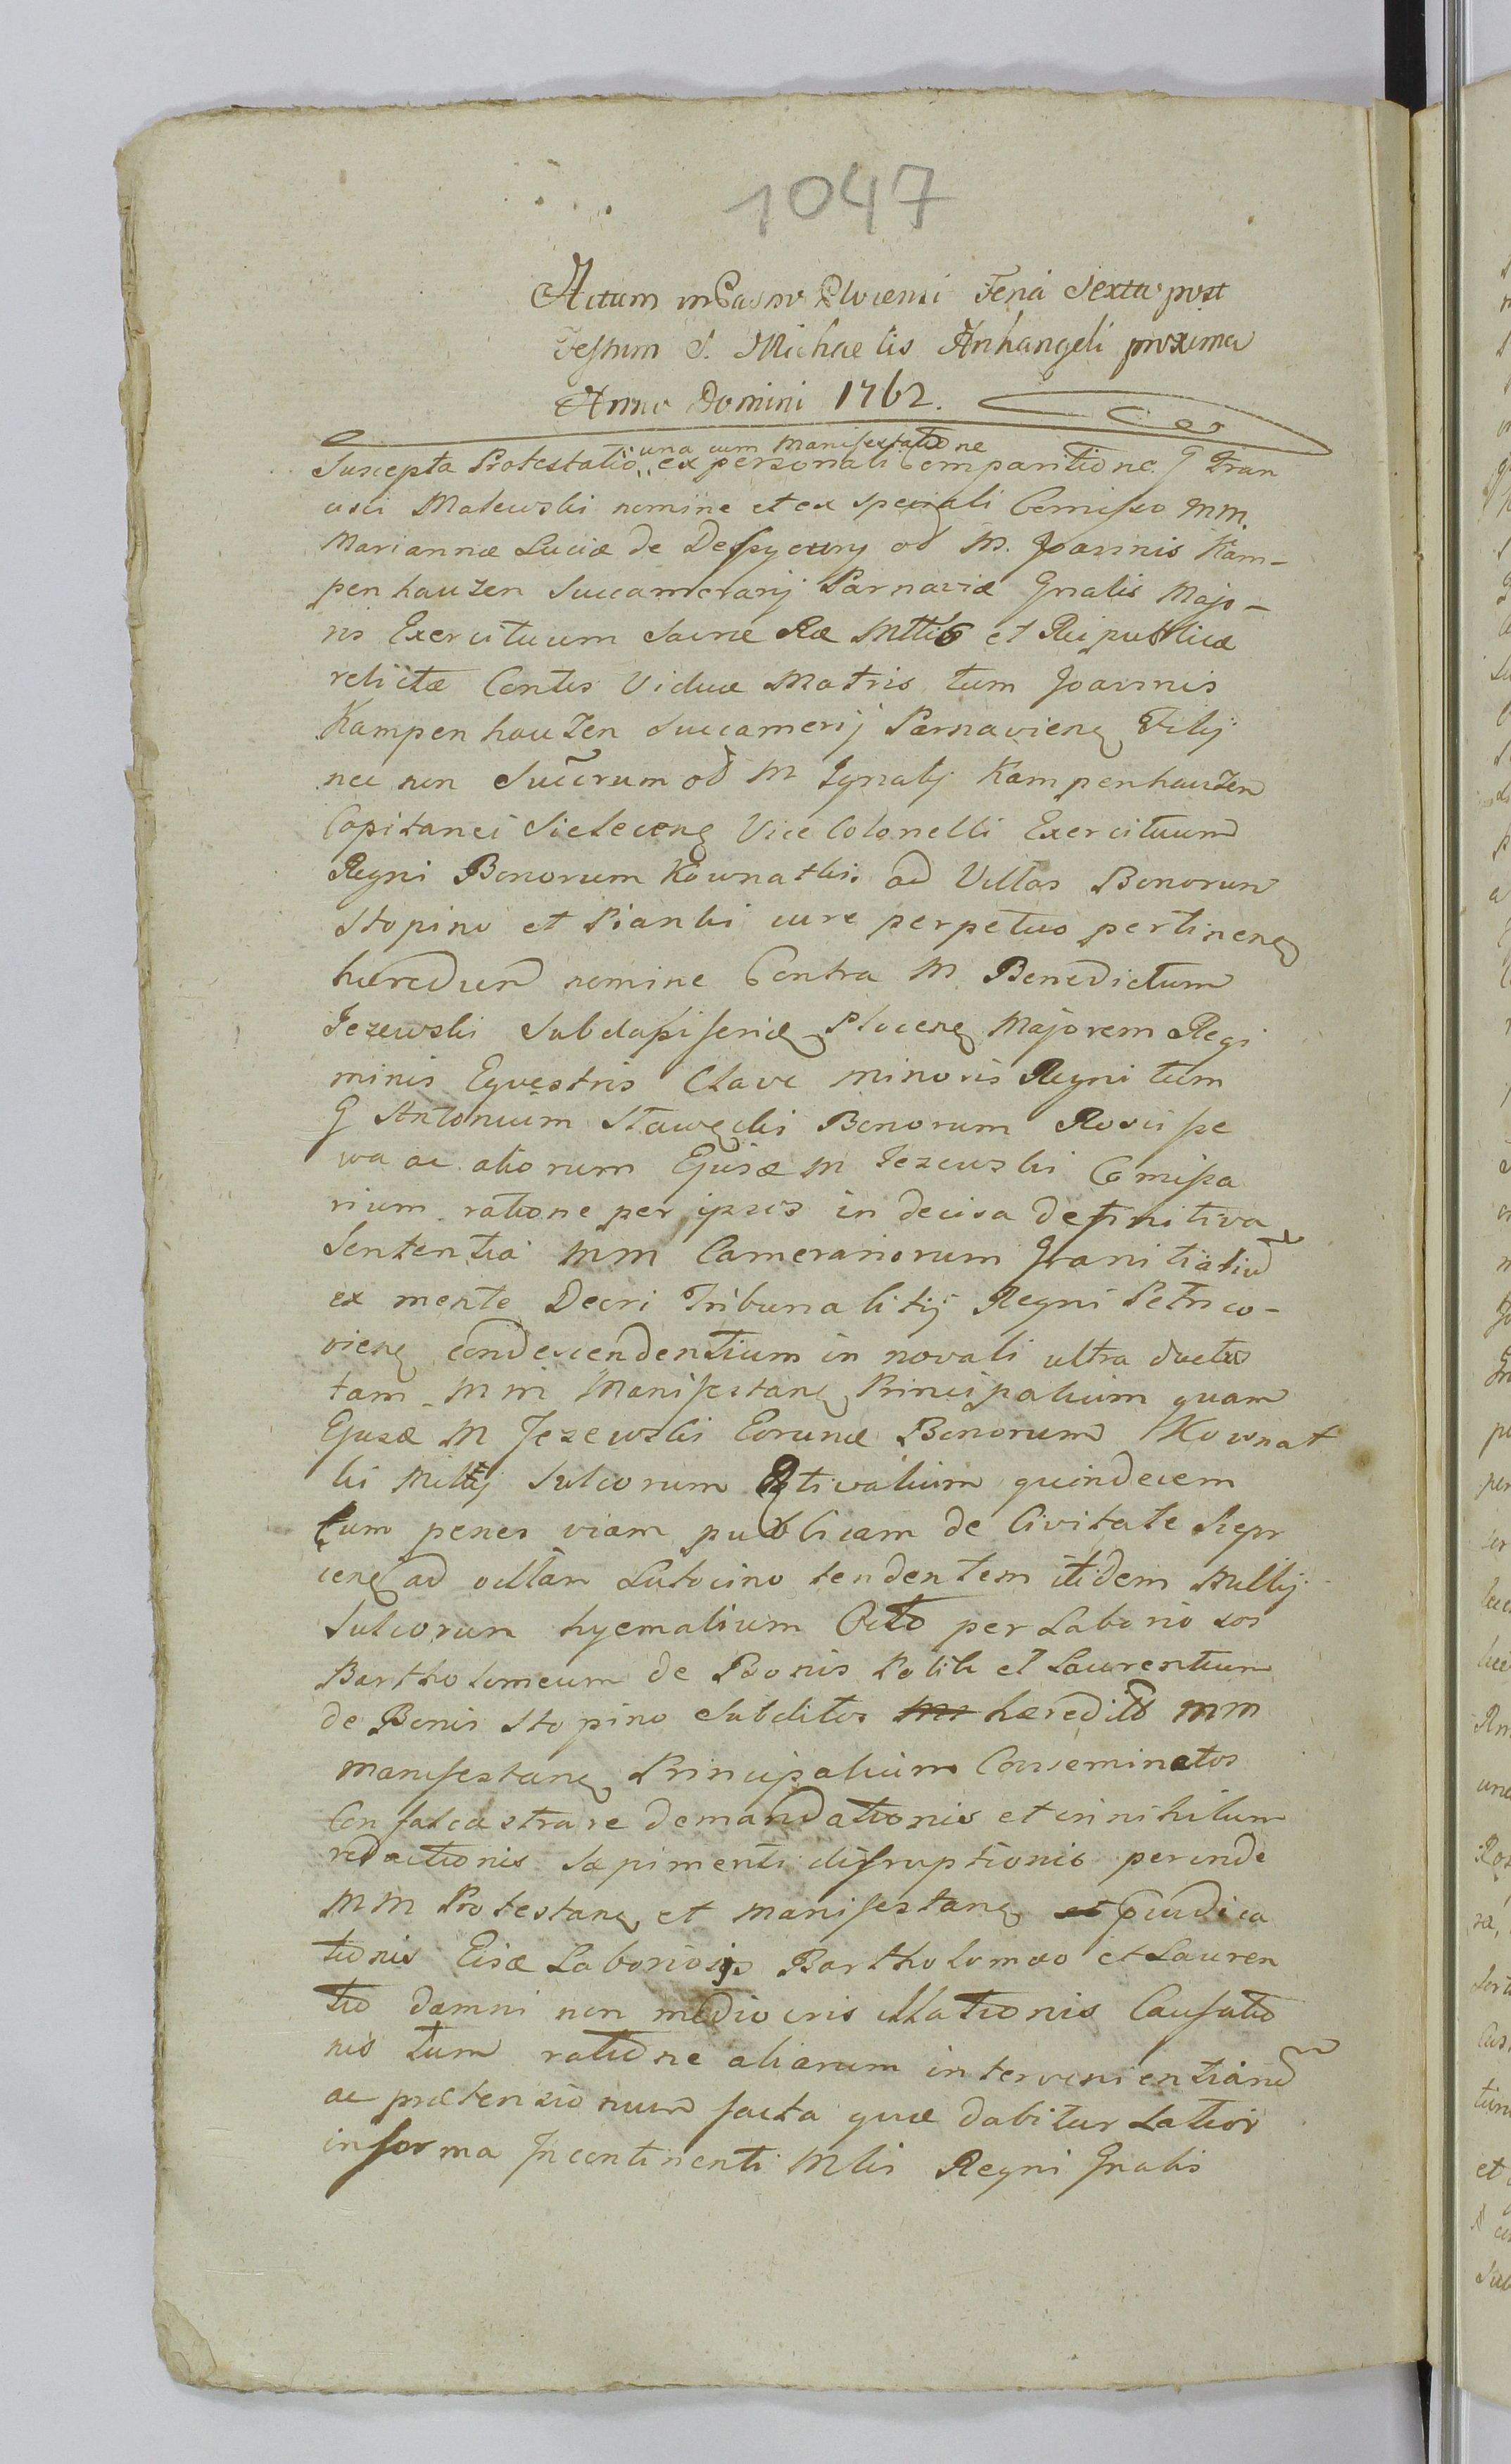 1047
Actum in Castro Plocensi Feria Sexta post
Festum S. Michaelis Archangeli proxima
Anno Domini 1762.
una cum Manifestatione
Suscepta Protestatio ex personali Comparitione G Fran
cisci Malewski nomine et ex speciali Comisso MM.
Mariannæ Luciæ de olim M. Joannis Kam-
penhauzen Succamerarij Parnaviæ Gnalis Majo-
ris Exercituum Sacræ Ræ Mttis et Reipublicæ
relictæ Contis Viduæ Matris tum Joannis
Kampenhauzen Succamerij Parnaviens Filij
nec non Succrum od M Ignatij Kampenhauzen
Capitanei Vice Colonelli Exercituum
Regni Bonorum Kownatki ad Villas Bonorum
Stopino et Pianki iure perpetuo pertinens
hæredum nomine Contra M. Benedictum
Jezewski Subdapiferid Plocens Majorem Regi
minis Eqvestris Clave minoris Regni tum
G Antonium Stawecki Bonorum Roscisze
wa ac aliorum Ejusd M Jezewski Comissa
rium ratione per ipsos in decisa definitiva
Sententia MM Camerariorum Granitialiu
ex mente Decri Tribunalitij Regni Petrico-
viens condescendentium in novali ultra ductus
tam MM Manifestans Principalium quam
Ejusd M Jezewski Eorund Bonorum Kownat
ki Sulcorum quindecem
tum penes viam publicam de Civitate Siepr
cens ad villam Lutocino tendentem itidem
Sulcorum hyemalium Octo per Laboriosos
Bartholomeum de Bonis et Laurentium
de Bonis Stopino Subditos hæredits MM
manifestans Principalium Conseminatos
Confalcastrare demandationis et in nihilum
redactionis Sæpimenti disruptionis perinde
MM Protestans et manifestans
tionis Eisd Laboriosis Bartholomæo et Lauren
tio damni non mediocris illationis Causatio
nis tum ratione aliarum intervenientiand
ac prætensionum facta quæ dabitur Latior
in forma Incontinenti Mlis Regni Gnalis